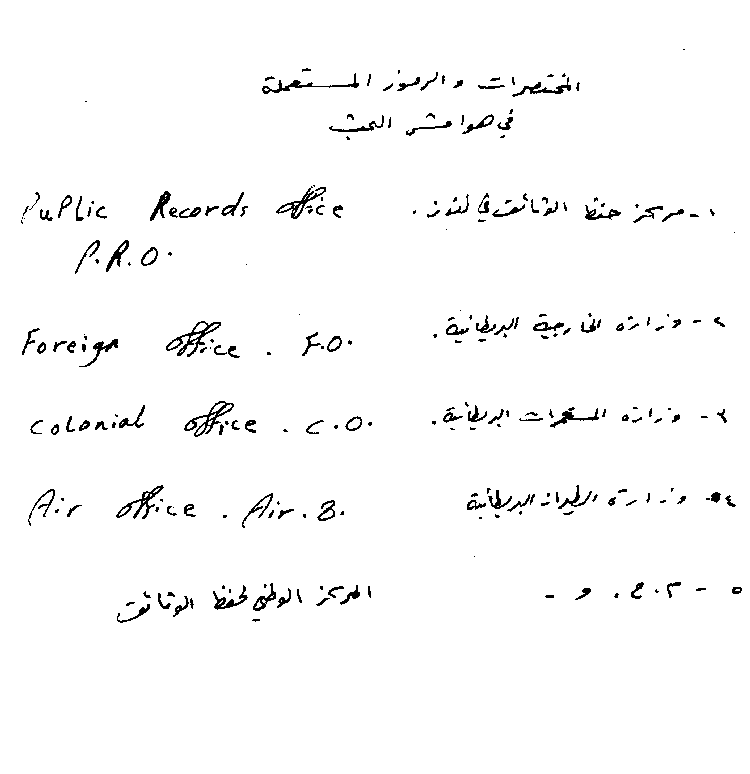 المختصرات والرموز المستعملة
في هوامش البحث
١- مركز حفظ الوثائق في لندن. Public Records office
P.R.O.
٢- وزارة الخارجية البريطانية. Foreign office. F.O.
٣- وزارة المستعمرات البريطانية. Colonial office. C.O.
٤- وزارة الطيران البريطانية Air office. Air. 8.
٥- م. ح. و- المركز الوطني لحفظ الوثائق